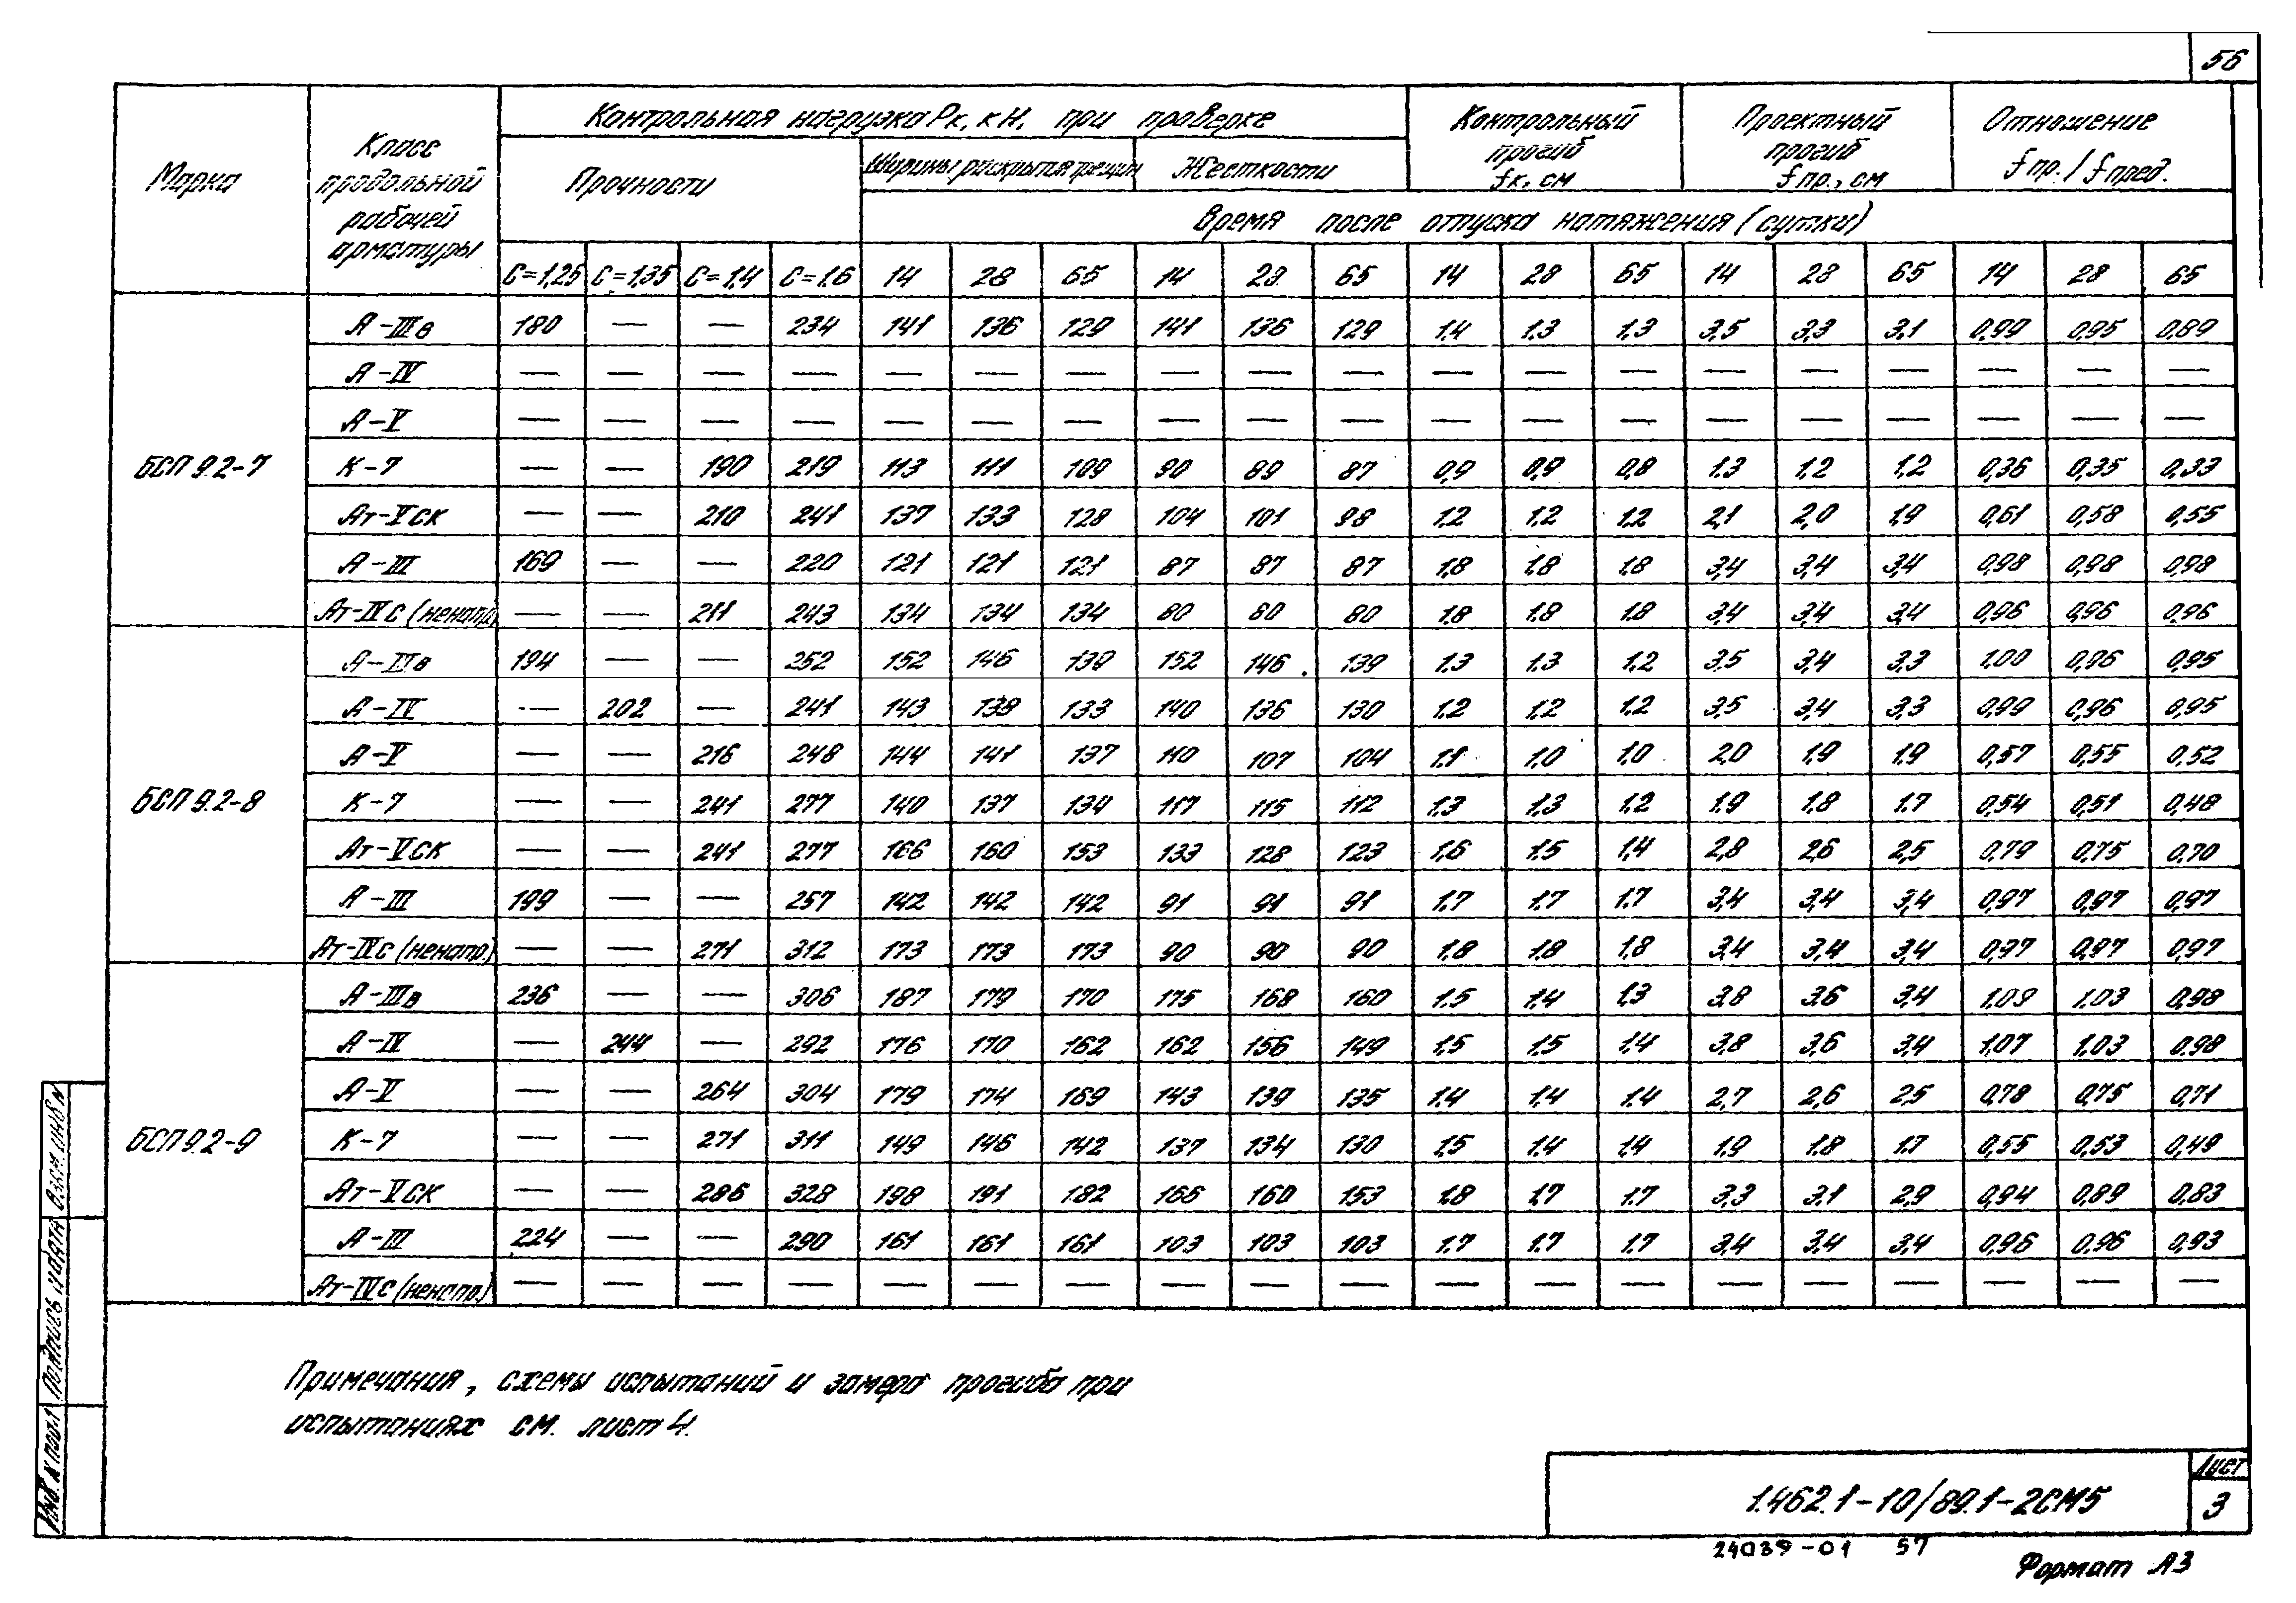 56
Марка
Класс продольной рабочей арматуры
Контрольная нагрузка Рк, кН, при проверке
Контрольный прогиб fк, см
Проектный прогиб fпр., см
Отношение fпр./fпред.
Прочности
Ширины раскрытия трещин
Жесткости
Время после отпуска натяжения (сутки)
С=1,25 С=1,35 С=1,4 С=1,6 14 28 65 14 28 65 14 28 65 14 28 65 14 28 65
БСП 9.2-7
А-IIIв 180 — — 234 141 136 129 141 136 129 1,4 1,3 1,3 3,5 3,3 3,1 0,99 0,95 0,89
А-IV — — — — — — — — — — — — — — — — — — —
А-V — — — — — — — — — — — — — — — — — — —
К-7 — — 190 219 113 111 109 90 89 87 0,9 0,9 0,8 1,3 1,2 1,2 0,36 0,35 0,33
Ат-VСК — — 210 241 137 133 128 104 101 98 1,2 1,2 1,2 2,1 2,0 1,9 0,61 0,58 0,55
А-III 169 — — 220 121 121 121 87 87 87 1,8 1,8 1,8 3,4 3,4 3,4 0,98 0,98 0,98
Ат-IVС (ненапр) — — 211 243 134 134 134 80 80 80 1,8 1,8 1,8 3,4 3,4 3,4 0,96 0,96 0,96
БСП 9.2-8
А-IIIв 194 — — 252 152 146 139 152 146 139 1,3 1,3 1,2 3,5 3,4 3,3 1,00 0,96 0,95
А-IV — 202 — 241 143 138 133 140 136 130 1,2 1,2 1,2 3,5 3,4 3,3 0,99 0,96 0,95
А-V — — 216 248 144 141 137 110 107 104 1,1 1,0 1,0 2,0 1,9 1,9 0,57 0,55 0,52
К-7 — — 241 277 140 137 134 117 115 112 1,3 1,3 1,2 1,9 1,8 1,7 0,54 0,51 0,48
Ат-VСК — — 241 277 166 160 153 133 128 123 1,6 1,5 1,4 2,8 2,6 2,5 0,79 0,75 0,70
А-III 199 — — 257 142 142 142 91 91 91 1,7 1,7 1,7 3,4 3,4 3,4 0,97 0,97 0,97
Ат-IVС (ненапр.) — — 271 312 173 173 173 90 90 90 1,8 1,8 1,8 3,4 3,4 3,4 0,97 0,97 0,97
БСП 9.2-9
А-IIIв 236 — — 306 187 179 170 175 168 160 1,5 1,4 1,3 3,8 3,6 3,4 1,09 1,03 0,98
А-IV — 244 — 292 176 170 162 162 156 149 1,5 1,5 1,4 3,8 3,6 3,4 1,07 1,03 0,98
А-V — — 264 304 179 174 169 143 139 135 1,4 1,4 1,4 2,7 2,6 2,5 0,78 0,75 0,71
К-7 — — 271 311 149 146 142 137 134 130 1,5 1,4 1,4 1,9 1,8 1,7 0,55 0,53 0,49
Ат-VСК — — 286 328 198 191 182 166 160 153 1,8 1,7 1,7 3,3 3,1 2,9 0,94 0,89 0,83
А-III 224 — — 290 161 161 161 103 103 103 1,7 1,7 1,7 3,4 3,4 3,4 0,96 0,96 0,93
Ат-IVС (ненапр.) — — — — — — — — — — — — — — — — — — —
Примечания, схемы испытаний и замера прогиба при
испытаниях см. лист 4.
Инв. N подл. Подпись и дата Взам. инв. N
1.462.1-10/89.1-2СМ5
Лист
3
24039-01 57
Формат А3